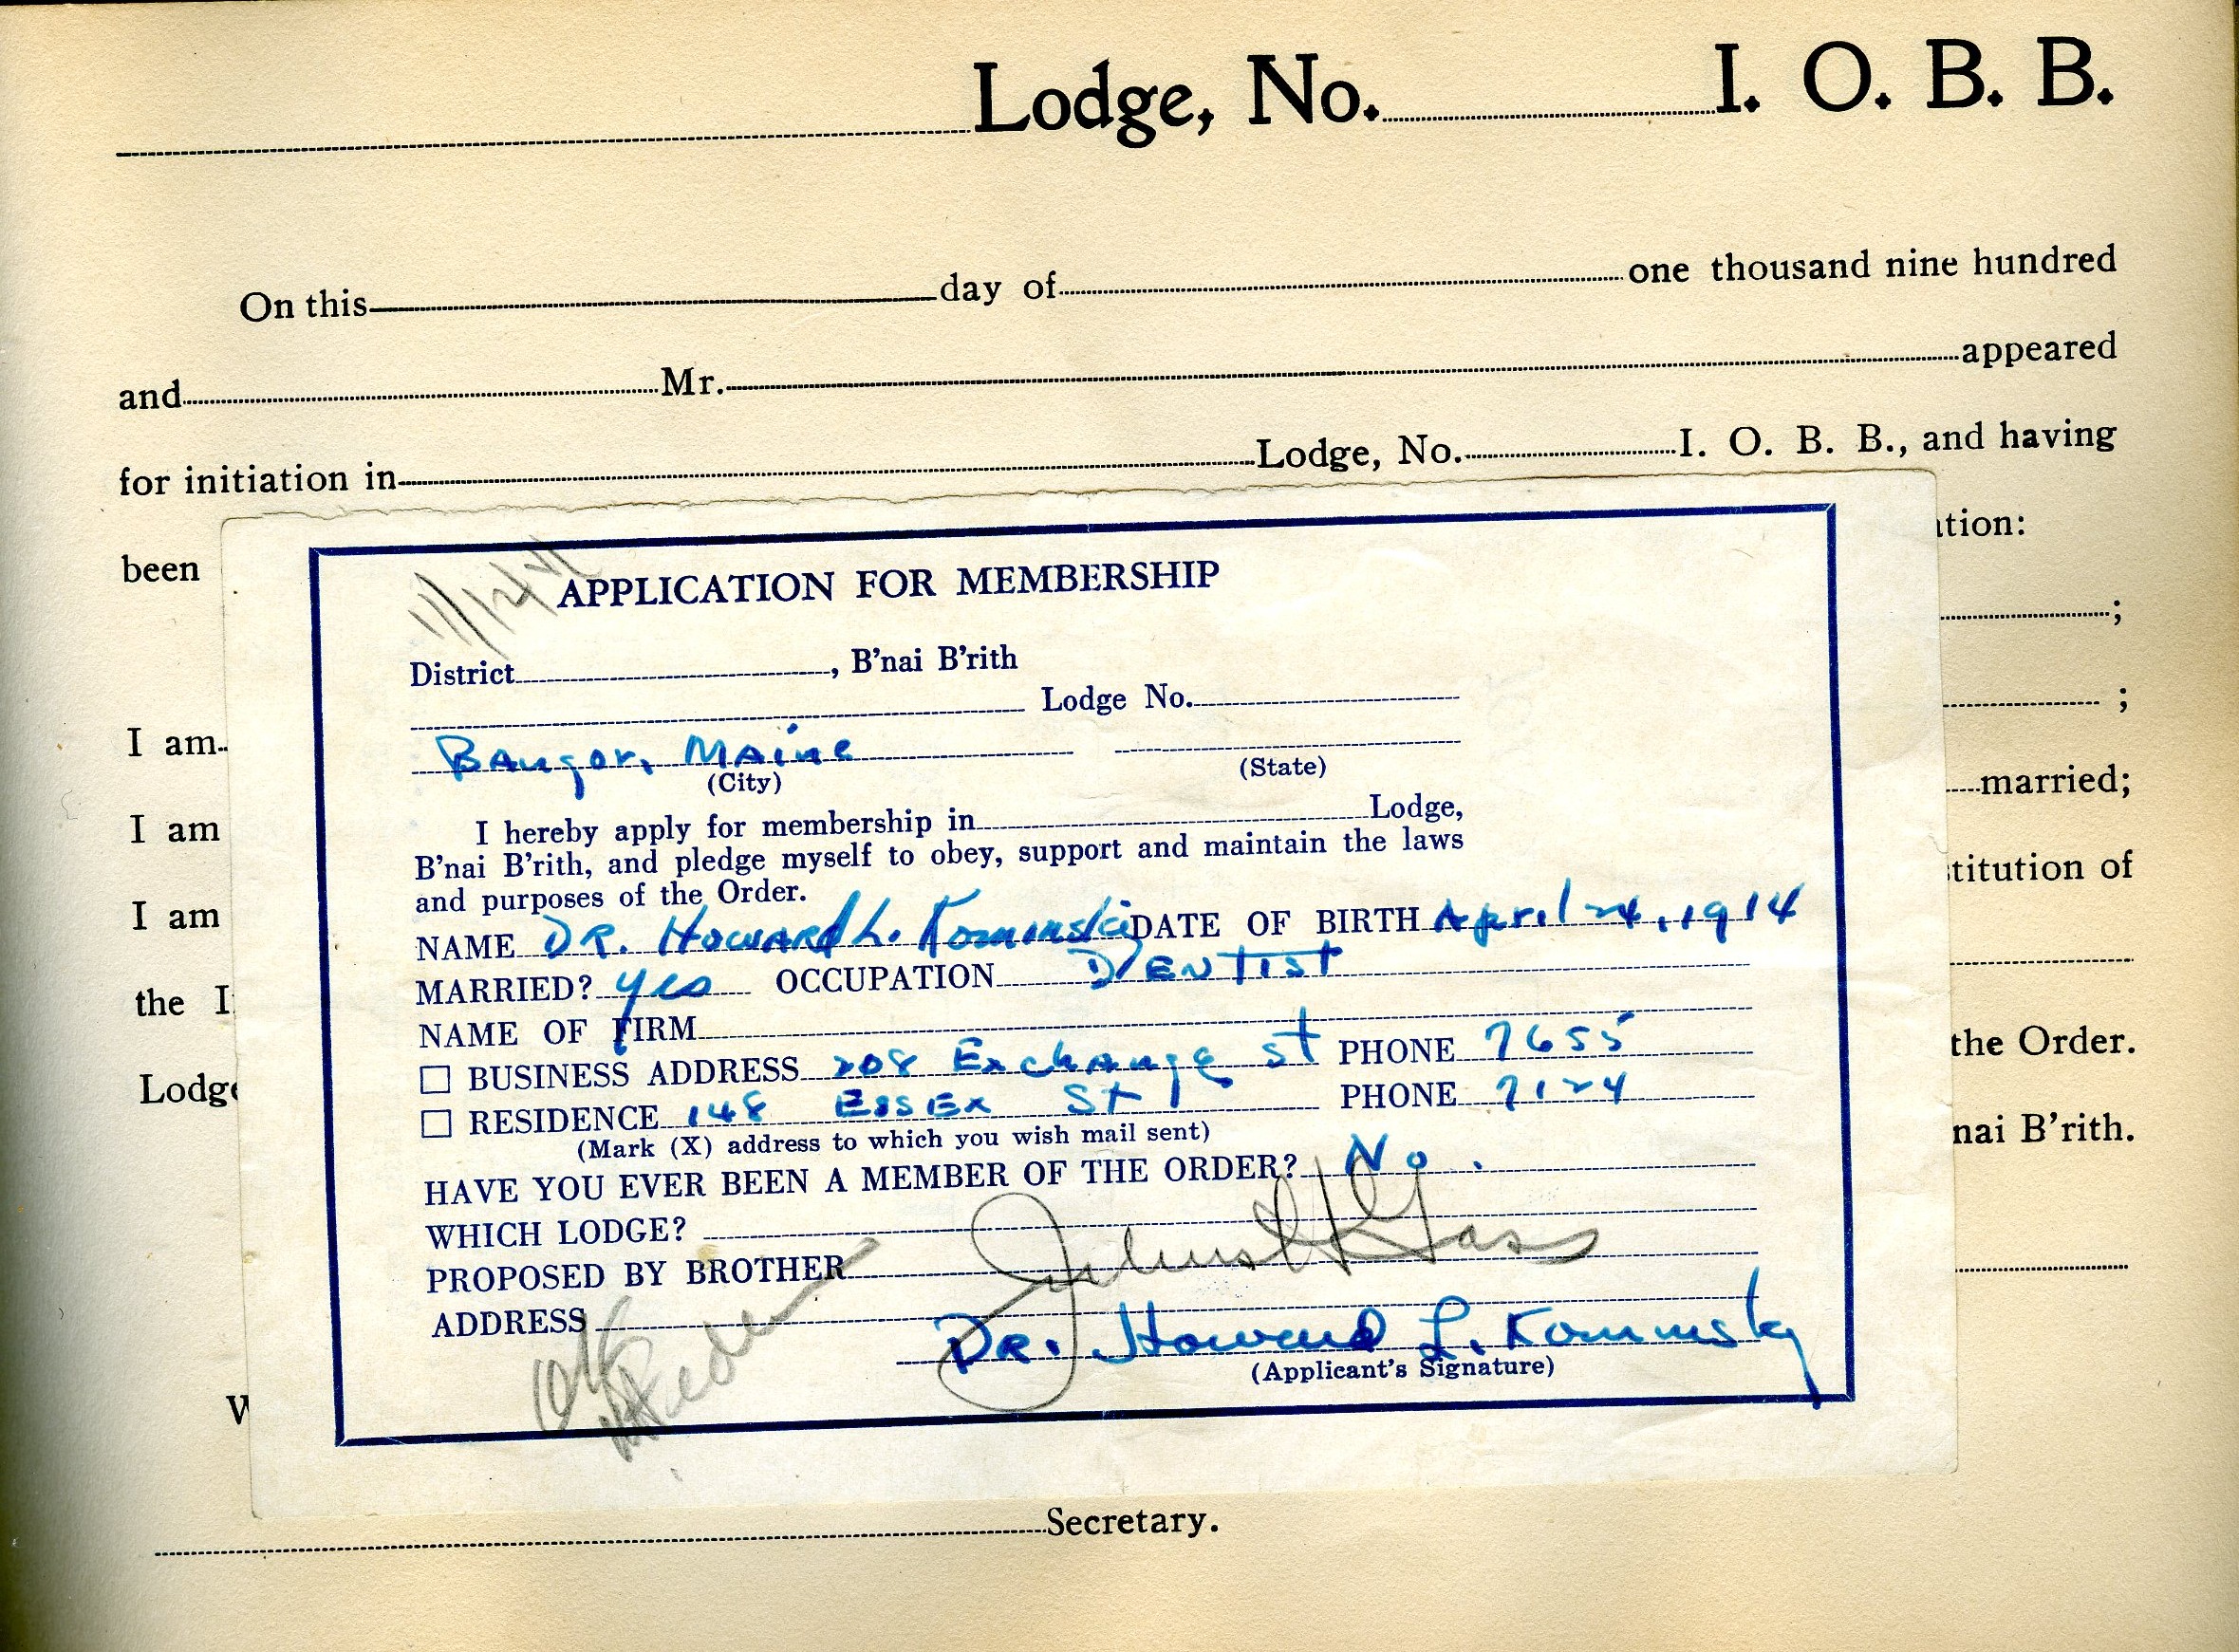 Lodge, No. I. O. B. B.
On this day of one thousand nine hundred
and Mr. appeared
for initiation in Lodge, No. I. O. B. B., and having
been ation:
;
I am ;
I am married;
I am titution of
the I
Lodge the Order.
nai B'rith.
W
Secretary.
APPLICATION FOR MEMBERSHIP
District , B'nai B'rith
Lodge No.
Bangor, Maine
(City) (State)
I hereby apply for membership in Lodge,
B'nai B'rith, and pledge myself to obey, support and maintain the laws
and purposes of the Order.
NAME DR. Howard L. Kominsky DATE OF BIRTH April 24, 1914
MARRIED? yes OCCUPATION DENTIST
NAME OF FIRM
BUSINESS ADDRESS 208 Exchange St PHONE 7655
RESIDENCE 148 Essex St PHONE 7124
(Mark (X) address to which you wish mail sent)
HAVE YOU EVER BEEN A MEMBER OF THE ORDER? No.
WHICH LODGE?
PROPOSED BY BROTHER
ADDRESS
DR. Howard L. Kominsky
(Applicant's Signature)